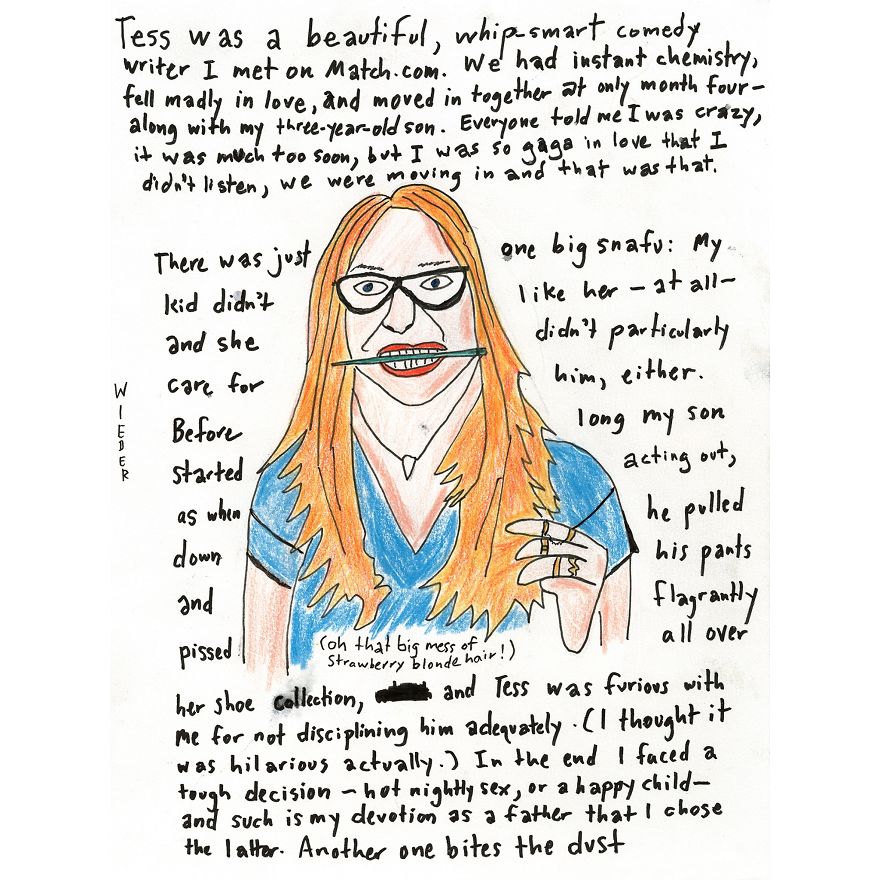 Tess was a beautiful, whip-smart comedy
writer I met on Match.com. We had instant chemistry,
fell madly in love, and moved in together at only month four-
along with my three-year-old son. Everyone told me I was crazy,
it was much too soon, but I was so gaga in love that I
didn't listen, we were moving in and that was that.
There was just one big snafu: My
kid didn't like her - at all-
and she didn't particularly
care for him, either.
Before long my son
started acting out,
as when he pulled
down his pants
and flagrantly
pissed all over
(oh that big mess of
strawberry blonde hair!)
her shoe collection, and Tess was furious with
me for not disciplining him adequately. (I thought it
was hilarious actually.) In the end I faced a
tough decision - hot nightly sex, or a happy child-
and such is my devotion as a father that I chose
the latter. Another one bites the dust
WIEDER